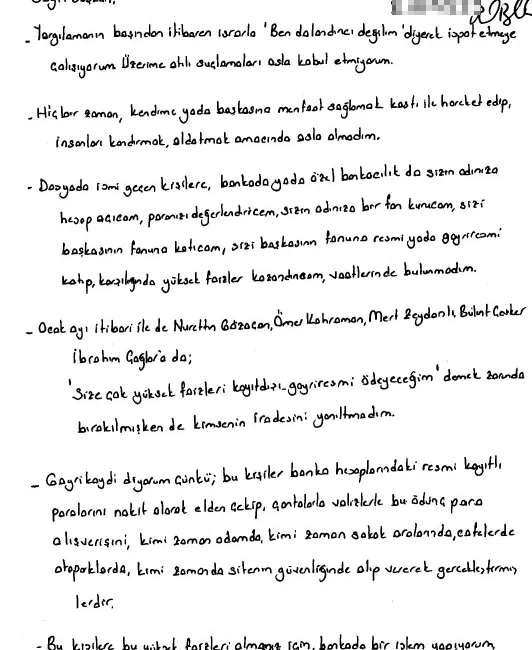 - Yargılamanın başından itibaren ısrarla 'Ben dolandırıcı değilim' diyerek ispat etmeye
çalışıyorum Üzerime atılı suçlamaları asla kabul etmiyorum.
- Hiç bir zaman, kendime yada başkasına menfaat sağlamak kastı ile hareket edip,
insanları kandırmak, aldatmak amacında asla olmadım.
- Dosyada ismi geçen kişilere, bankada yada özel bankacılık da sizin adınıza
hesap açıcam, paranızı değerlendiricem, sizin adınıza bir fon kurucam, sizi
başkasının fonuna katıcam, sizi başkasının fonuna resmi yada gayriresmi
katıp, karşılığında yüksek faizler kazandırıcam, vaatlerinde bulunmadım.
- Ocak ayı itibari ile de Nurettin Ömer Kahraman, Mert Bülent
İbrahim Çağlar'a da;
'Size çok yüksek faizleri kayıtdışı-gayriresmi ödeyeceğim' demek zorunda
bırakılmışken de kimsenin iradesini yanıltmadım.
- Gayrikaydi diyorum çünkü; bu kişiler banka hesaplarındaki resmi kayıtlı
paralarını nakit olarak elden çekip, çantalarla valizlerle bu ödünç para
alışverişini, kimi zaman odamda, kimi zaman sokak aralarında, cafelerde
otoparklarda, kimi zamanda sitenin güvenliğinde alıp vererek gerçekleştirmiş
lerdir.
- Bu kişilere bu yüksek faizleri almanız için, bankada bir işlem yapıyorum